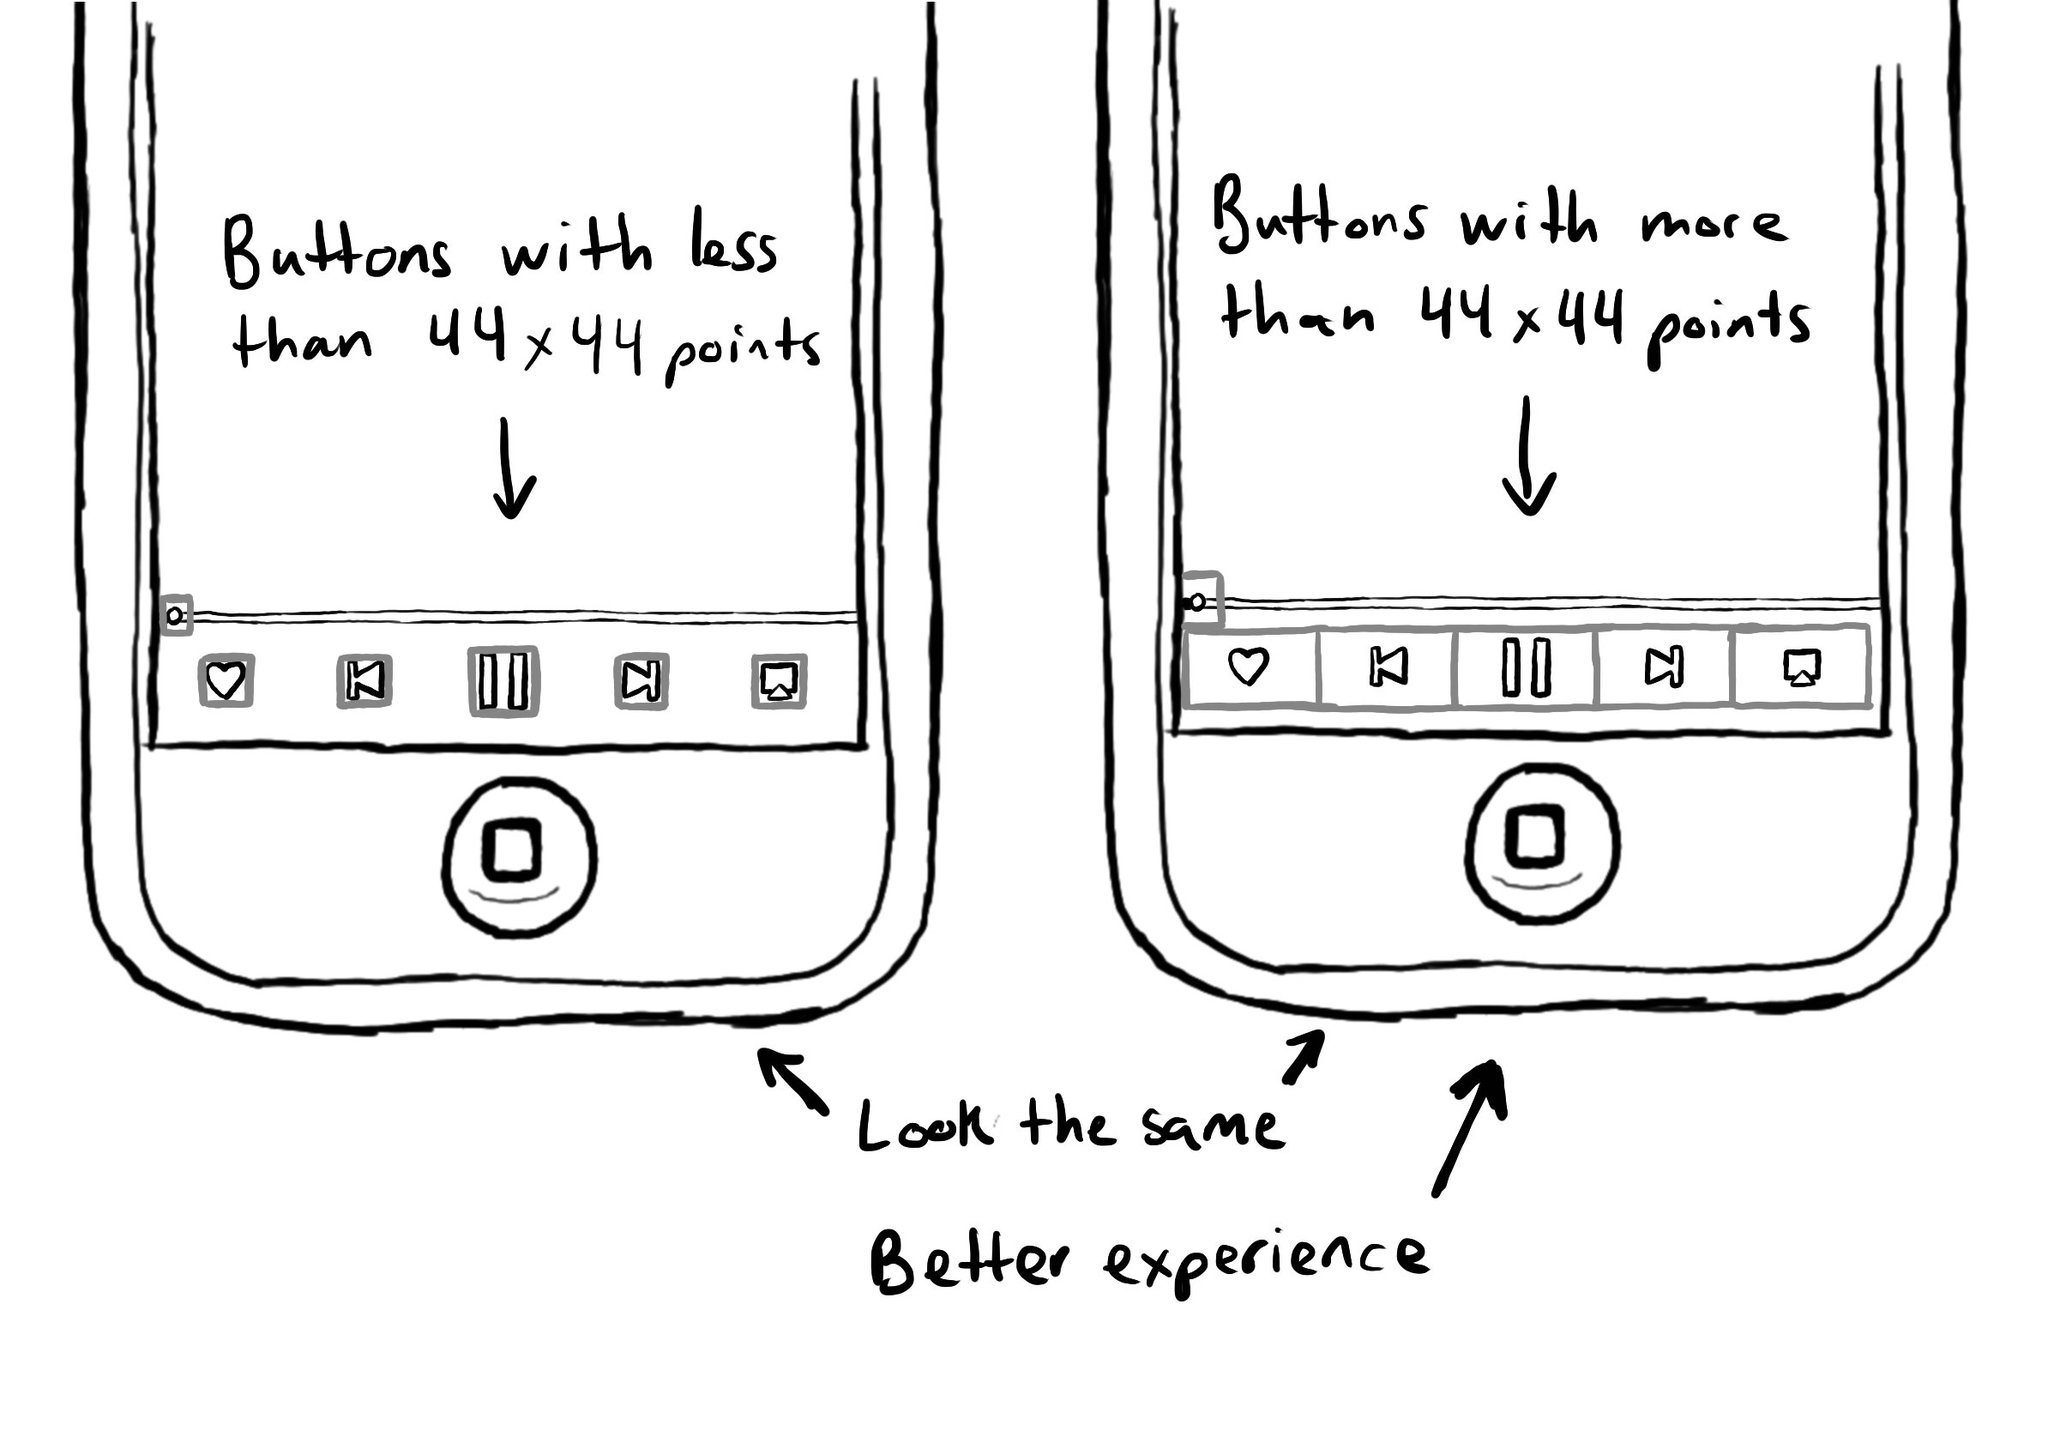 Buttons with less
than 44x44 points
Buttons with more
than 44x44 points
Look the same
Better experience